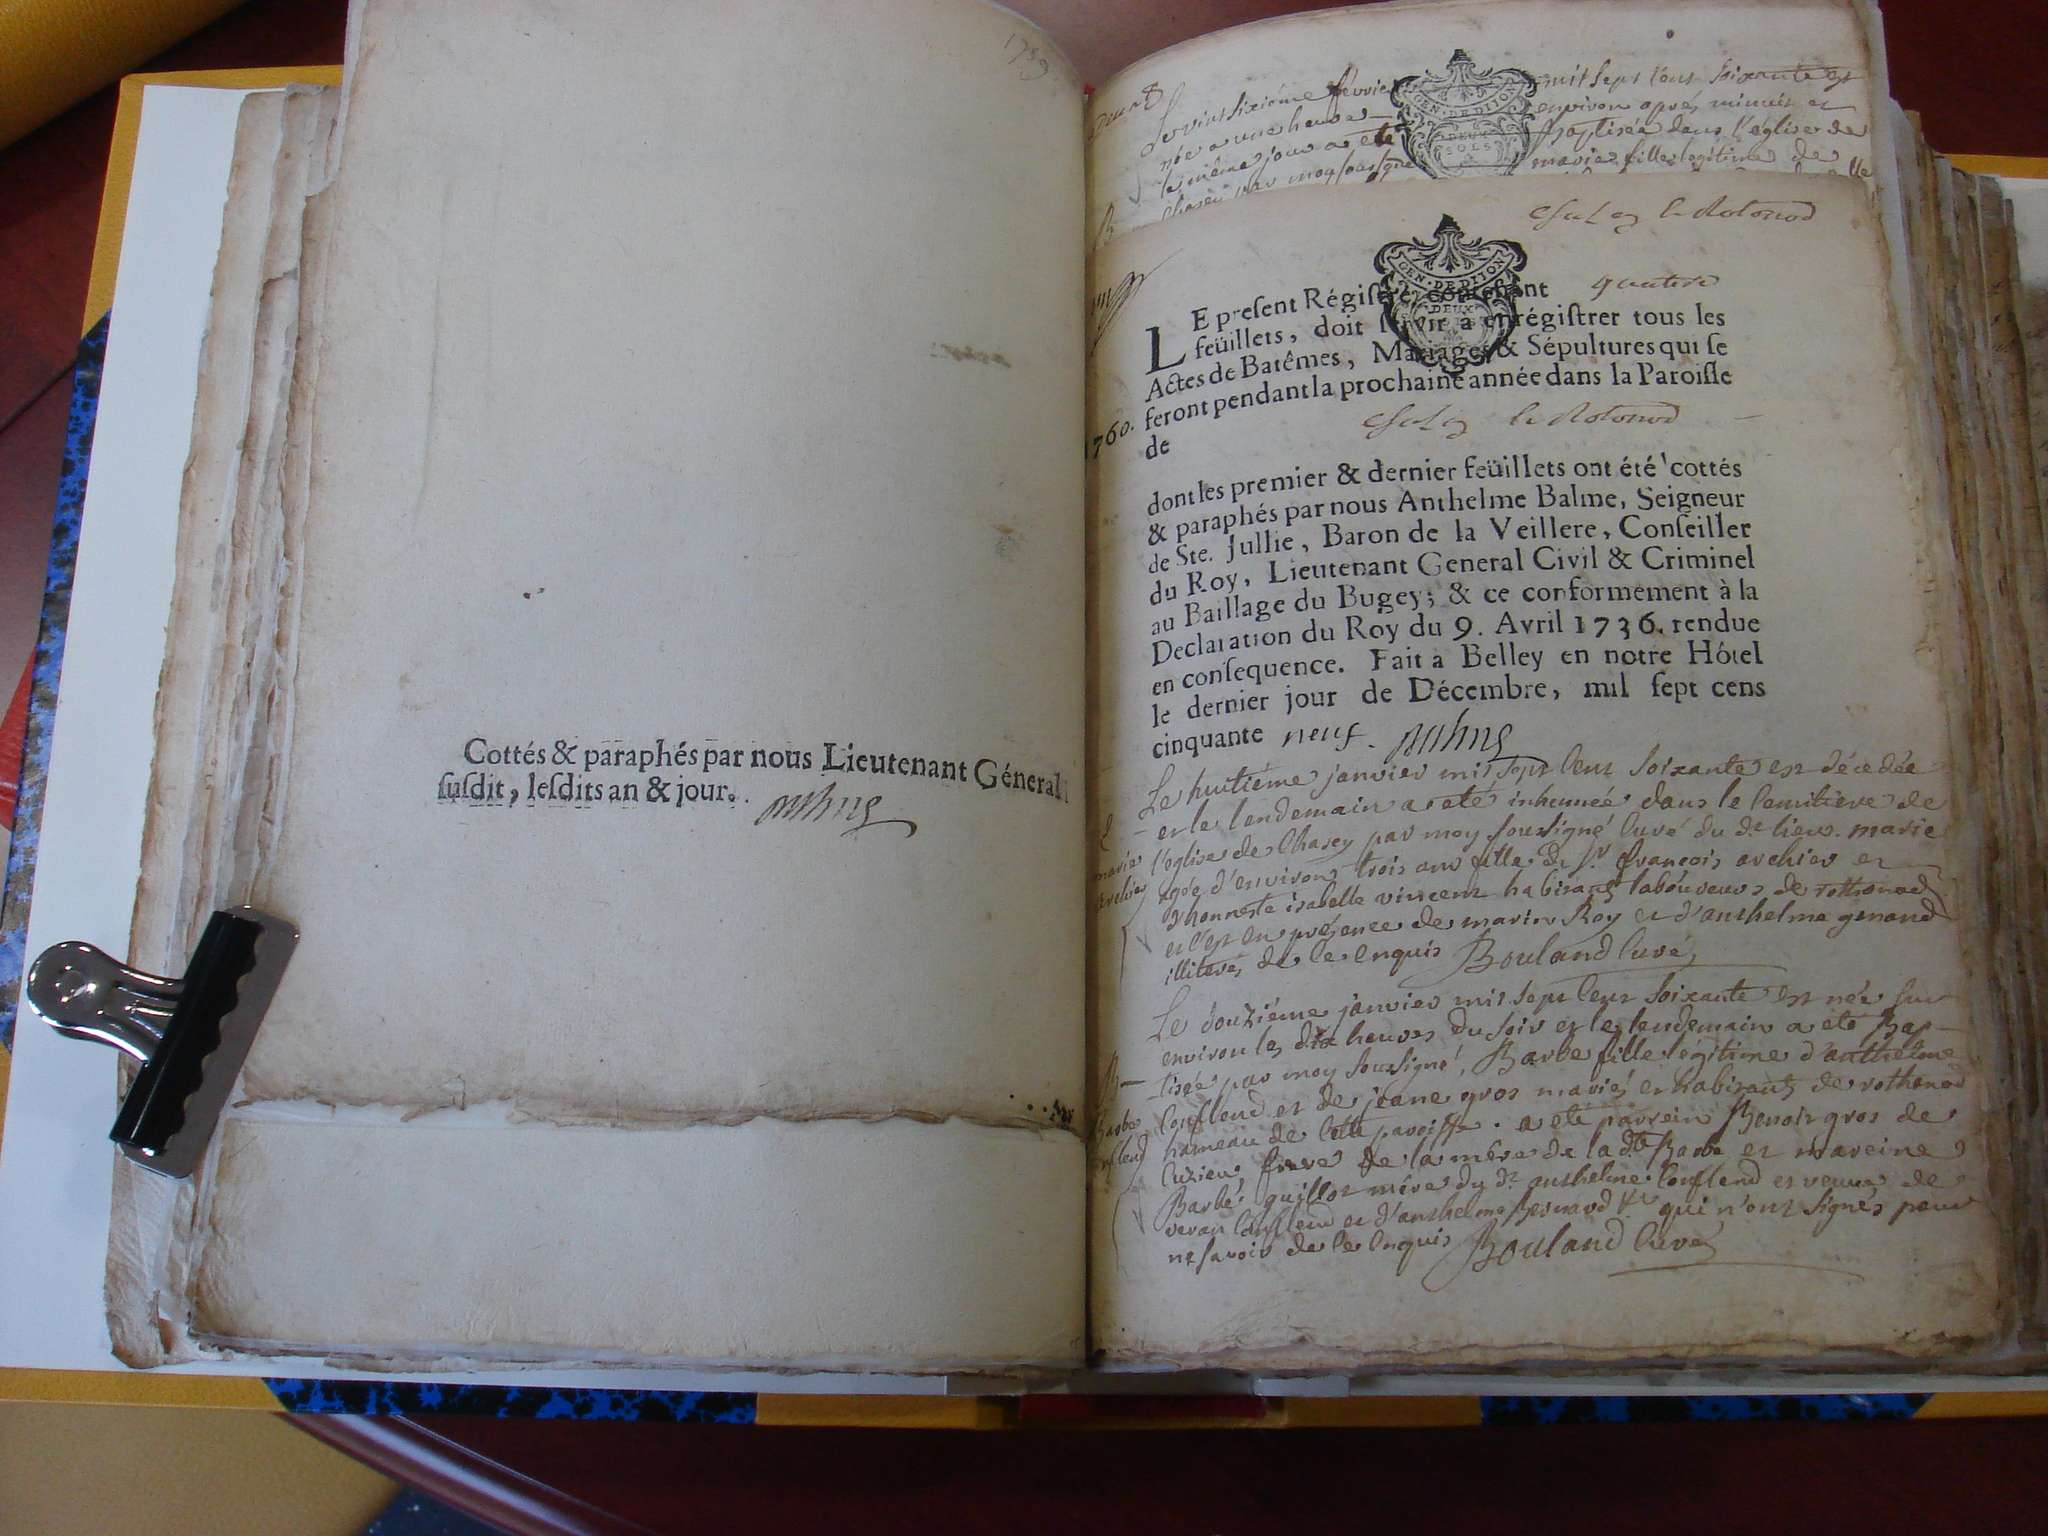 1759
Cottés & paraphés par nous Lieutenant Géneral
susdit, lesdits an & jour.
Le vint sixiéme février mil sept cent soixante est
née a une heure environ aprés minuit et
le même jour a eté Baptisée dans l'église de
Chasey par moy soussigné marie fille legitime de
GEN. DE DIJON
DEUX
SOLS
GEN. DE DIJON
DEUX
LE present Régistre, contenant quatre
feüillets, doit servir à enrégistrer tous les
Actes de Batêmes, Mariages & Sépultures qui se
feront pendant la prochaine année dans la Paroisse
1760.
de
dont les premier & dernier feüillets ont été cottés
& paraphés par nous Anthelme Balme, Seigneur
de Ste. Jullie, Baron de la Veillere, Conseiller
du Roy, Lieutenant General Civil & Criminel
au Baillage du Bugey; & ce conformement à la
Declaration du Roy du 9. Avril 1736. rendue
en consequence. Fait a Belley en notre Hôtel
le dernier jour de Décembre, mil sept cens
cinquante neuf.
Le huitiéme janvier mil sept cent soixante est décedée
et le lendemain a eté inhumée dans le cemitiere de
l'eglise de Chasey par moy soussigné curé du dt lieu marie
agée d'environ trois ans fille de Sr. françois archier et
d'honneste isabelle vincent habitants laboureurs de rothonod
et c'est en présence de marin Roy et d'anthelme genand
illiterés de ce enquis Bouland curé
marie
archier
Le douziéme janvier mil sept cent soixante est née sur
environ les dix heures du soir et le lendemain a eté Bap-
tisée par moy soussigné, Barbe fille légitime d'anthelme
Conflend et de jeane gros mariés et habitants de rothonod
hameau de cette paroisse. a eté parrein Benoit gros de
Cuzieu, frere de la mére de la dte Barbe et mareine
Barbe guillot mére du dt anthelme Conflend et veuve de
Conflend et d'anthelme qui n'ont signés pour
ne savoir de ce enquis Bouland curé
B
Barbe
Conflend